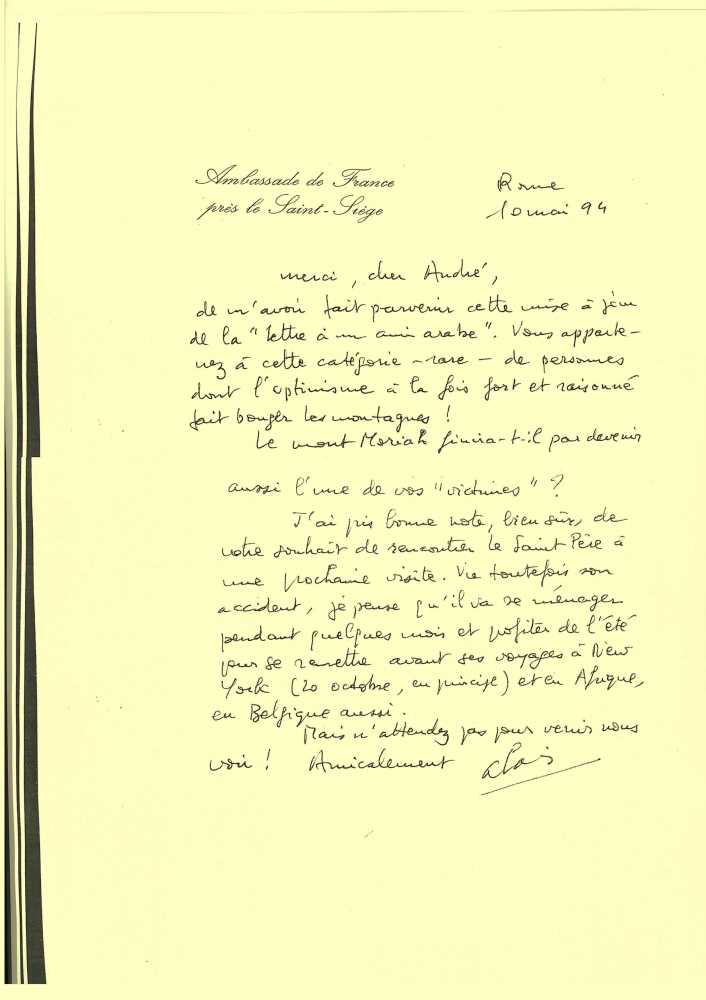 Ambassade de France
près le Saint-Siège
Rome
10 mai 94
merci, cher André,
de m'avoir fait parvenir cette mise à jour
de la "lettre à un ami arabe". Vous apparte-
nez à cette catégorie - rare - de personnes
dont l'optimisme à la fois fort et raisonné
fait bouger les montagnes !
Le mont Moriah finira-t-il par devenir
aussi l'une de vos "victimes" ?
J'ai pris bonne note, bien sûr, de
votre souhait de rencontrer le Saint Père à
une prochaine visite. Vu toutefois son
accident, je pense qu'il va se ménager
pendant quelques mois et profiter de l'été
pour se remettre avant ses voyages à New
York (20 octobre, en principe) et en Afrique,
en Belgique aussi.
Mais n'attendez pas pour venir nous
voir ! Amicalement